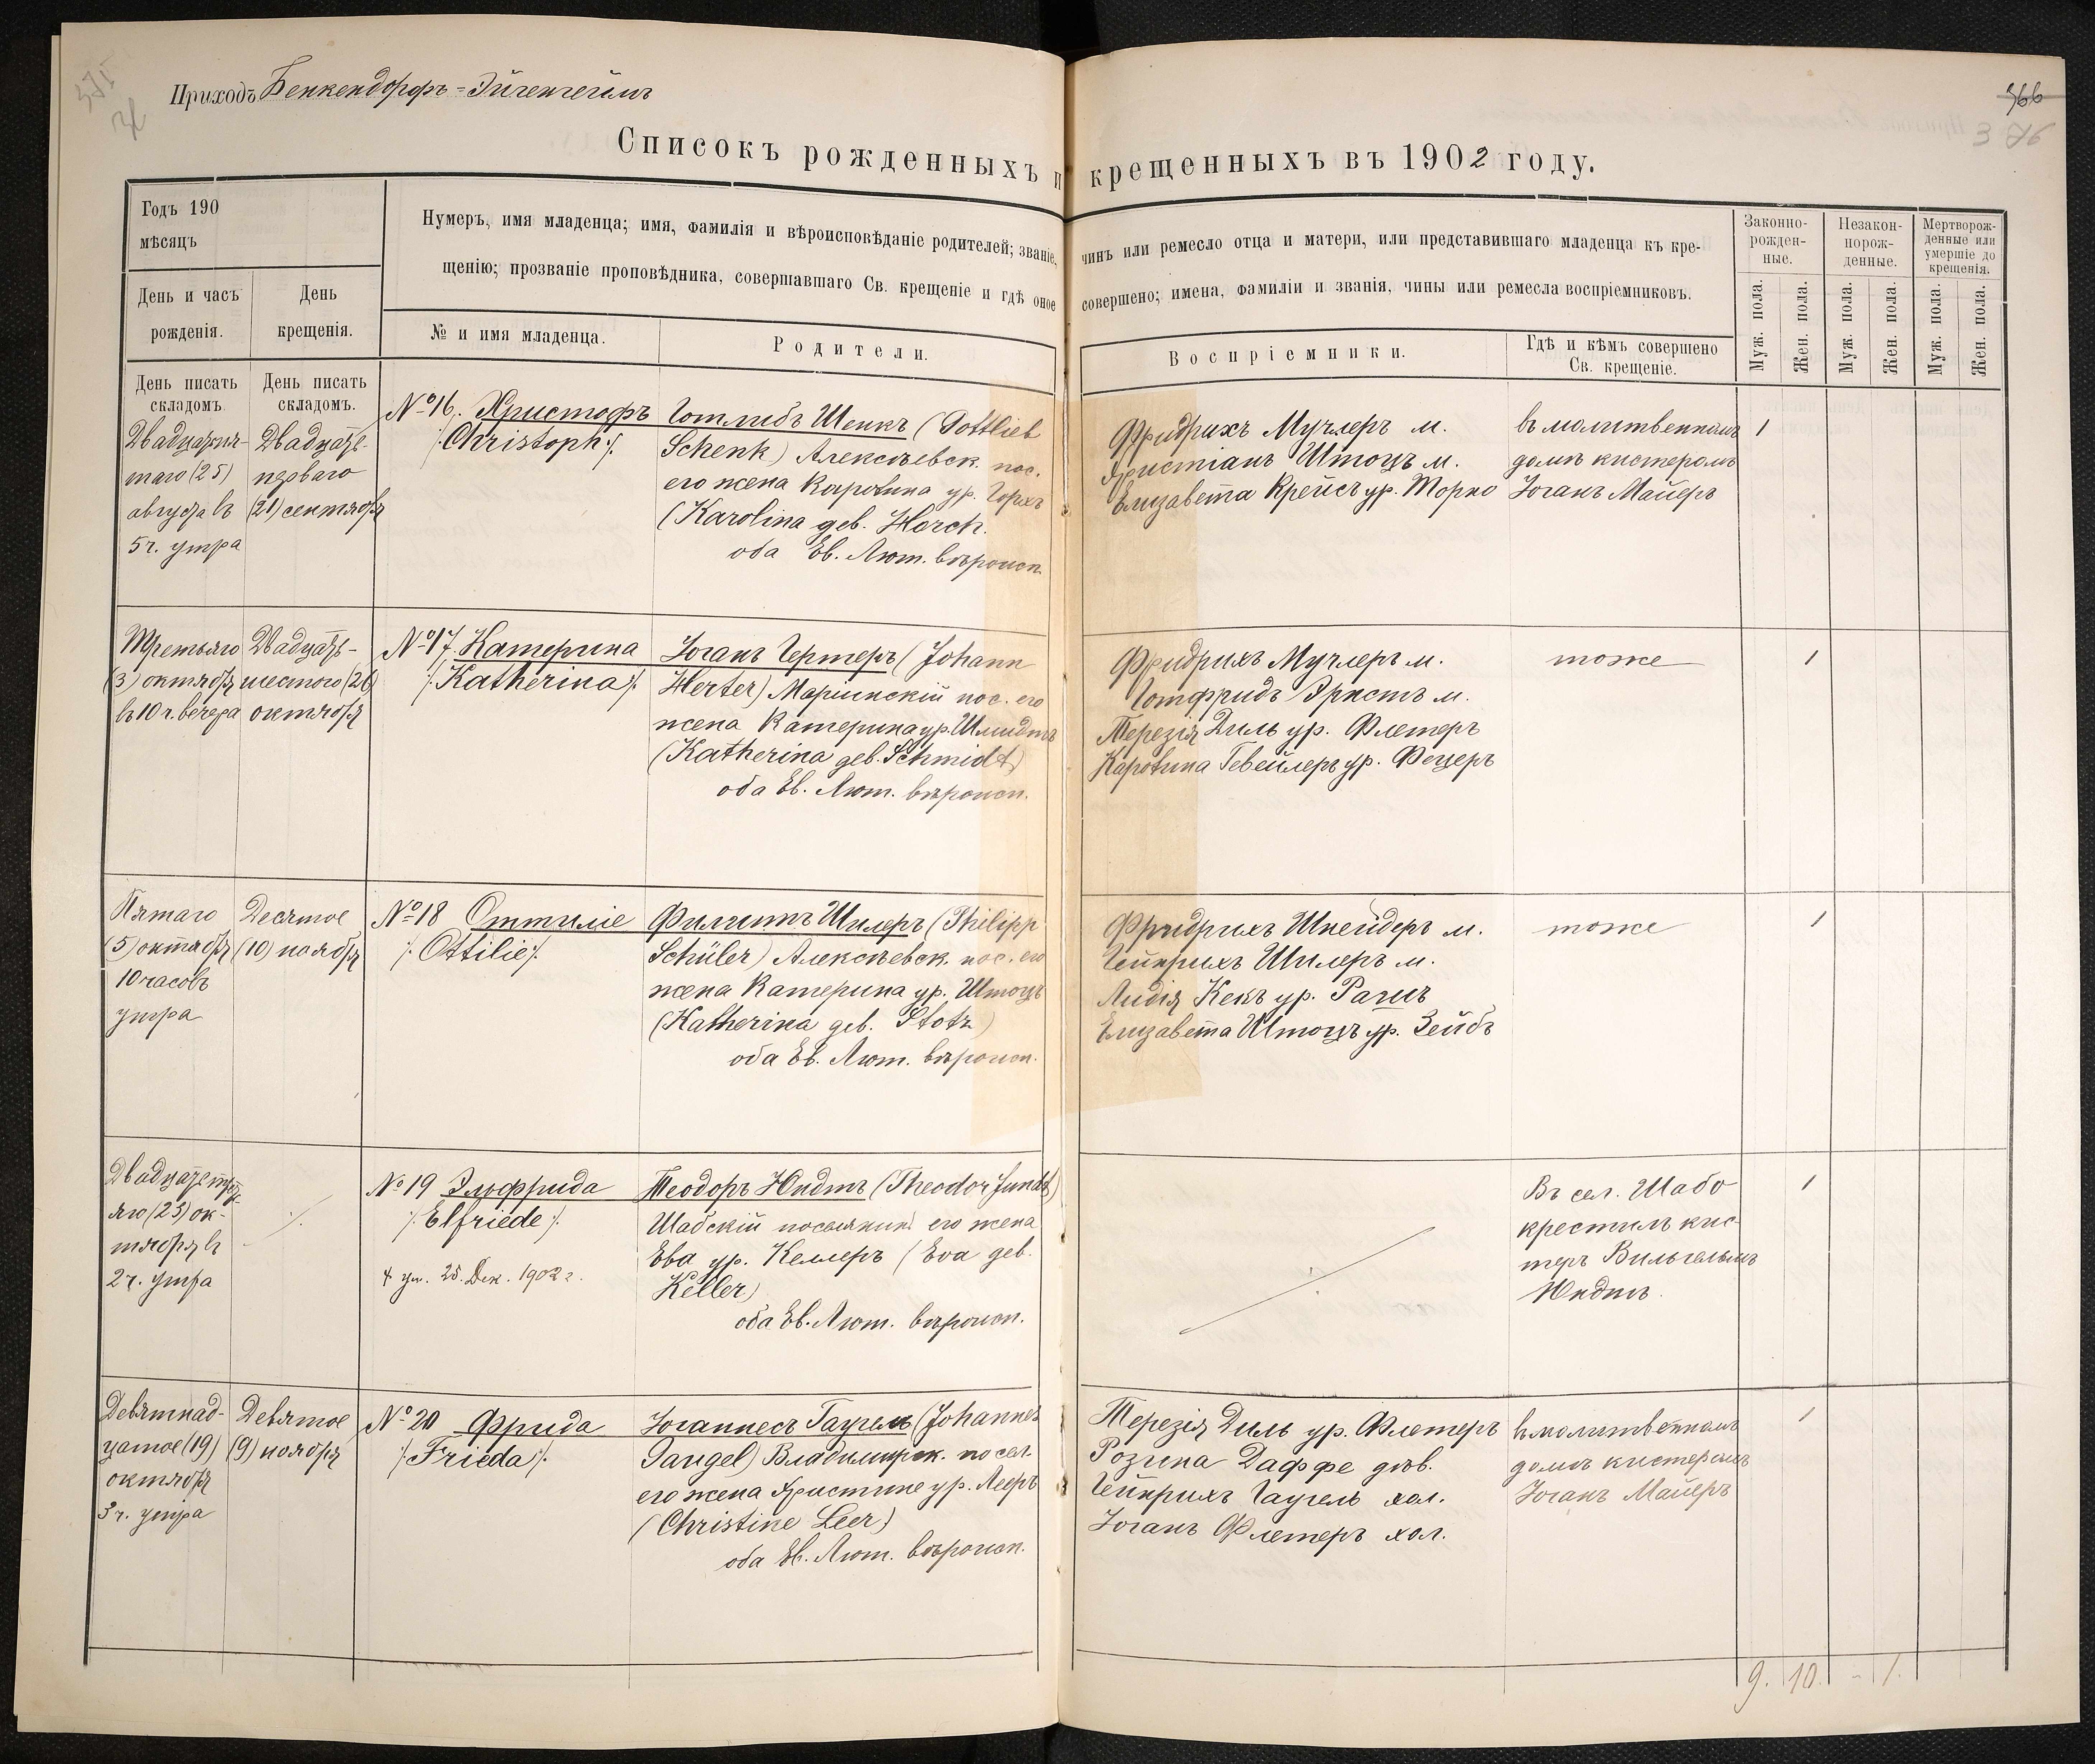 Приходъ Бенкендорфъ-Эйгенгеймъ
366
Списокъ рожденныхъ и крещенныхъ въ 1902 году.
Годъ 190
мѣсяцъ
День и часъ
рожденія.
День
крещенія.
Нумеръ, имя младенца; имя, фамилія и вѣроисповѣданіе родителей; званіе, чинъ или ремесло отца и матери, или представившаго младенца къ кре-
щенію; прозваніе проповѣдника, совершавшаго Св. крещеніе и гдѣ оное совершено; имена, фамиліи и званія, чины или ремесла воспріемниковъ.
№ и имя младенца.
Родители.
Воспріемники.
Гдѣ и кѣмъ совершено
Св. крещеніе.
Законно-
рожден-
ные.
Незакон-
норож-
денные.
Мертворож-
денные или
умершіе до
крещенія.
Муж. пола.
Жен. пола.
Муж. пола.
Жен. пола.
Муж. пола.
Жен. пола.
День писать
складомъ.
День писать
складомъ.
Двадцатипя-
таго (25)
августа въ
5 ч. утра
Двадцать-
перваго
(21) сентября
№ 16. Христофъ
/: Christoph :/
Готлибъ Шенкъ (Gottlieb
Schenk) Алексѣевск. пос.
его жена Каролина ур. Горхъ
(Karolina geb. Horch.
оба Ев. Лют. вѣроисп.
Фридрихъ Мучлеръ м.
Христіанъ Штоцъ м.
Елизавета Крейсъ ур. Торно
въ молитвенномъ
домѣ кистеромъ
Іоганъ Майеръ
1
Третьяго
(3) октября
въ 10 ч. вечера
Двадцать-
шестого (26)
октября
№ 17. Катерина
/: Katherina :/
Іоганъ Гертеръ (Johann
Herter) Маріинскій пос. его
жена Катерина ур. Шмидтъ
(Katherina geb. Schmidt)
оба Ев. Лют. вѣроисп.
Фридрихъ Мучлеръ м.
Готфридъ Эрнстъ м.
Терезія Диль ур. Флетеръ
Каролина Гевейлеръ ур. Фецеръ
тоже
1
Пятаго
(5) октября
10 часовъ
утра
Десятое
(10) ноября
№ 18 Оттиліе
/: Ottilie :/
Филиппъ Шилеръ (Philipp
Schüler) Алексѣевск. пос. его
жена Катерина ур. Штоцъ
(Katherina geb. Stotz)
оба Ев. Лют. вѣроисп.
Фридрихъ Шнейдеръ м.
Гейнрихъ Шилеръ м.
Лидія Кекъ ур.
Елизавета Штоцъ ур. Зейбъ
тоже
1
Двадцатьтреть-
яго (23) ок-
тября въ
2 ч. утра
№ 19 Эльфрида
/: Elfriede :/
ум. 25. Дек. 1902 г.
Теодоръ Юндтъ (Theodor Jundt)
Шабскій поселянинъ его жена
Ева ур. Келлеръ (Eva geb.
Keller)
оба Ев. Лют. вѣроисп.
Въ сел. Шабо
крестилъ кис-
теръ Вильгельмъ
Юндтъ.
1
Девятнад-
цатое (19)
октября
3 ч. утра
Девятое
(9) ноября
№ 20 Фрида
/: Frieda :/
Іоганнесъ Гаугель (Johannes
Gaugel) Владимірск. посел.
его жена Христине ур. Лееръ
(Christine Leer)
оба Ев. Лют. вѣроисп.
Терезія Диль ур. Флетеръ
Розина Даффе дѣв.
Гейнрихъ Гаугель хол.
Іоганъ Флетеръ хол.
въ молитвенномъ
домѣ кистеромъ
Іоганъ Майеръ
1
9. 10. - 1.